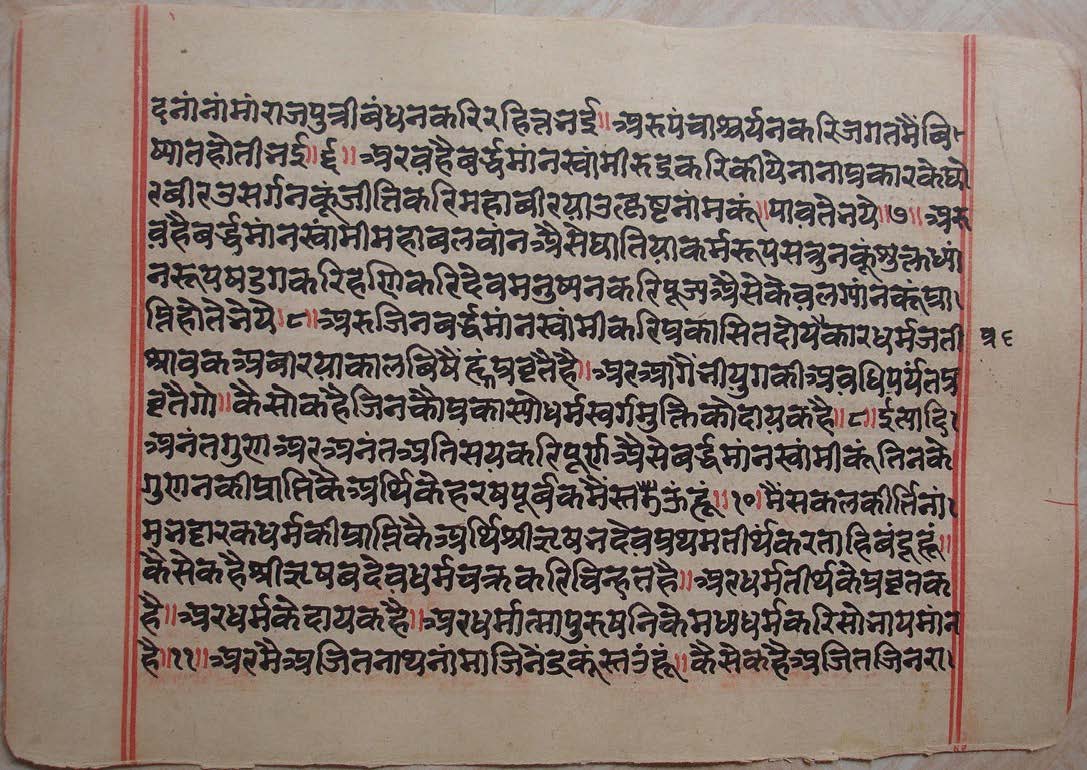 दनांनांमांराजपुत्रीबंधनकरिरहितभई॥अरुपंचाश्चर्यनकरिजगतमैंबि
ष्यातहोतीभई॥६॥अरवहैबर्द्धमांनस्वांमीरुद्रकरिकीयेनानाप्रकारकेघो
रबीरउसर्गनकूंजीतिकरिमहाबीरयाउत्कृष्टनांमकूं॥पावतेभये॥७॥अरु
वहैबर्द्धमांनस्वांमीमहाबलवांनअैसेघातियाकर्मरूपसत्रुनकूंशुक्लध्यां
नरूपषडगकरिहणिकरिदेवमनुष्यनकरिपूज्यअैसेकेवलग्यांनकूंप्रा
प्तिहोतेभये॥८॥अरुजिनबर्द्धमांनस्वांमीकरिप्रकासितदोयप्रकारधर्मजती
श्रावकअबारयाकालबिषैहूंप्रवृतैहै॥अरआगैंभीयुगकीअवधिपर्यंतप्र
वृतैगो॥कैसोकहैजिनकौप्रकास्योधर्मस्वर्गमुक्तिकोदायकहै॥९॥ईत्यादि
अनंतगुणअरअनंतअतिसयकरिपूर्णअैसेबर्द्धमांनस्वांमीकूंतिनके
गुणनकीप्राप्तिकैअर्थिकेहरषपूर्वकमैंस्तऊंहूं॥१०॥मैंसकलकीर्त्तिनां
मभट्टारकधर्मकीप्राप्तिकैअर्थिश्रीऋषभदेवप्रथमतीर्थकरताहिबंदूहूं॥
कैसेकहैश्रीऋषबदेवधर्मचक्रकरिचिन्हतहै॥अरधर्मतीर्थकेप्रवृतक
है॥अरधर्मकेदायकहै॥अरधर्मात्मापुरुषनिकैमध्यधर्मकरिसोभायमांन
है॥११॥अरमैअजितनाथनांमाजिनेंद्रकूंस्तउंहूं॥कैसेकहैअजितजिनरा